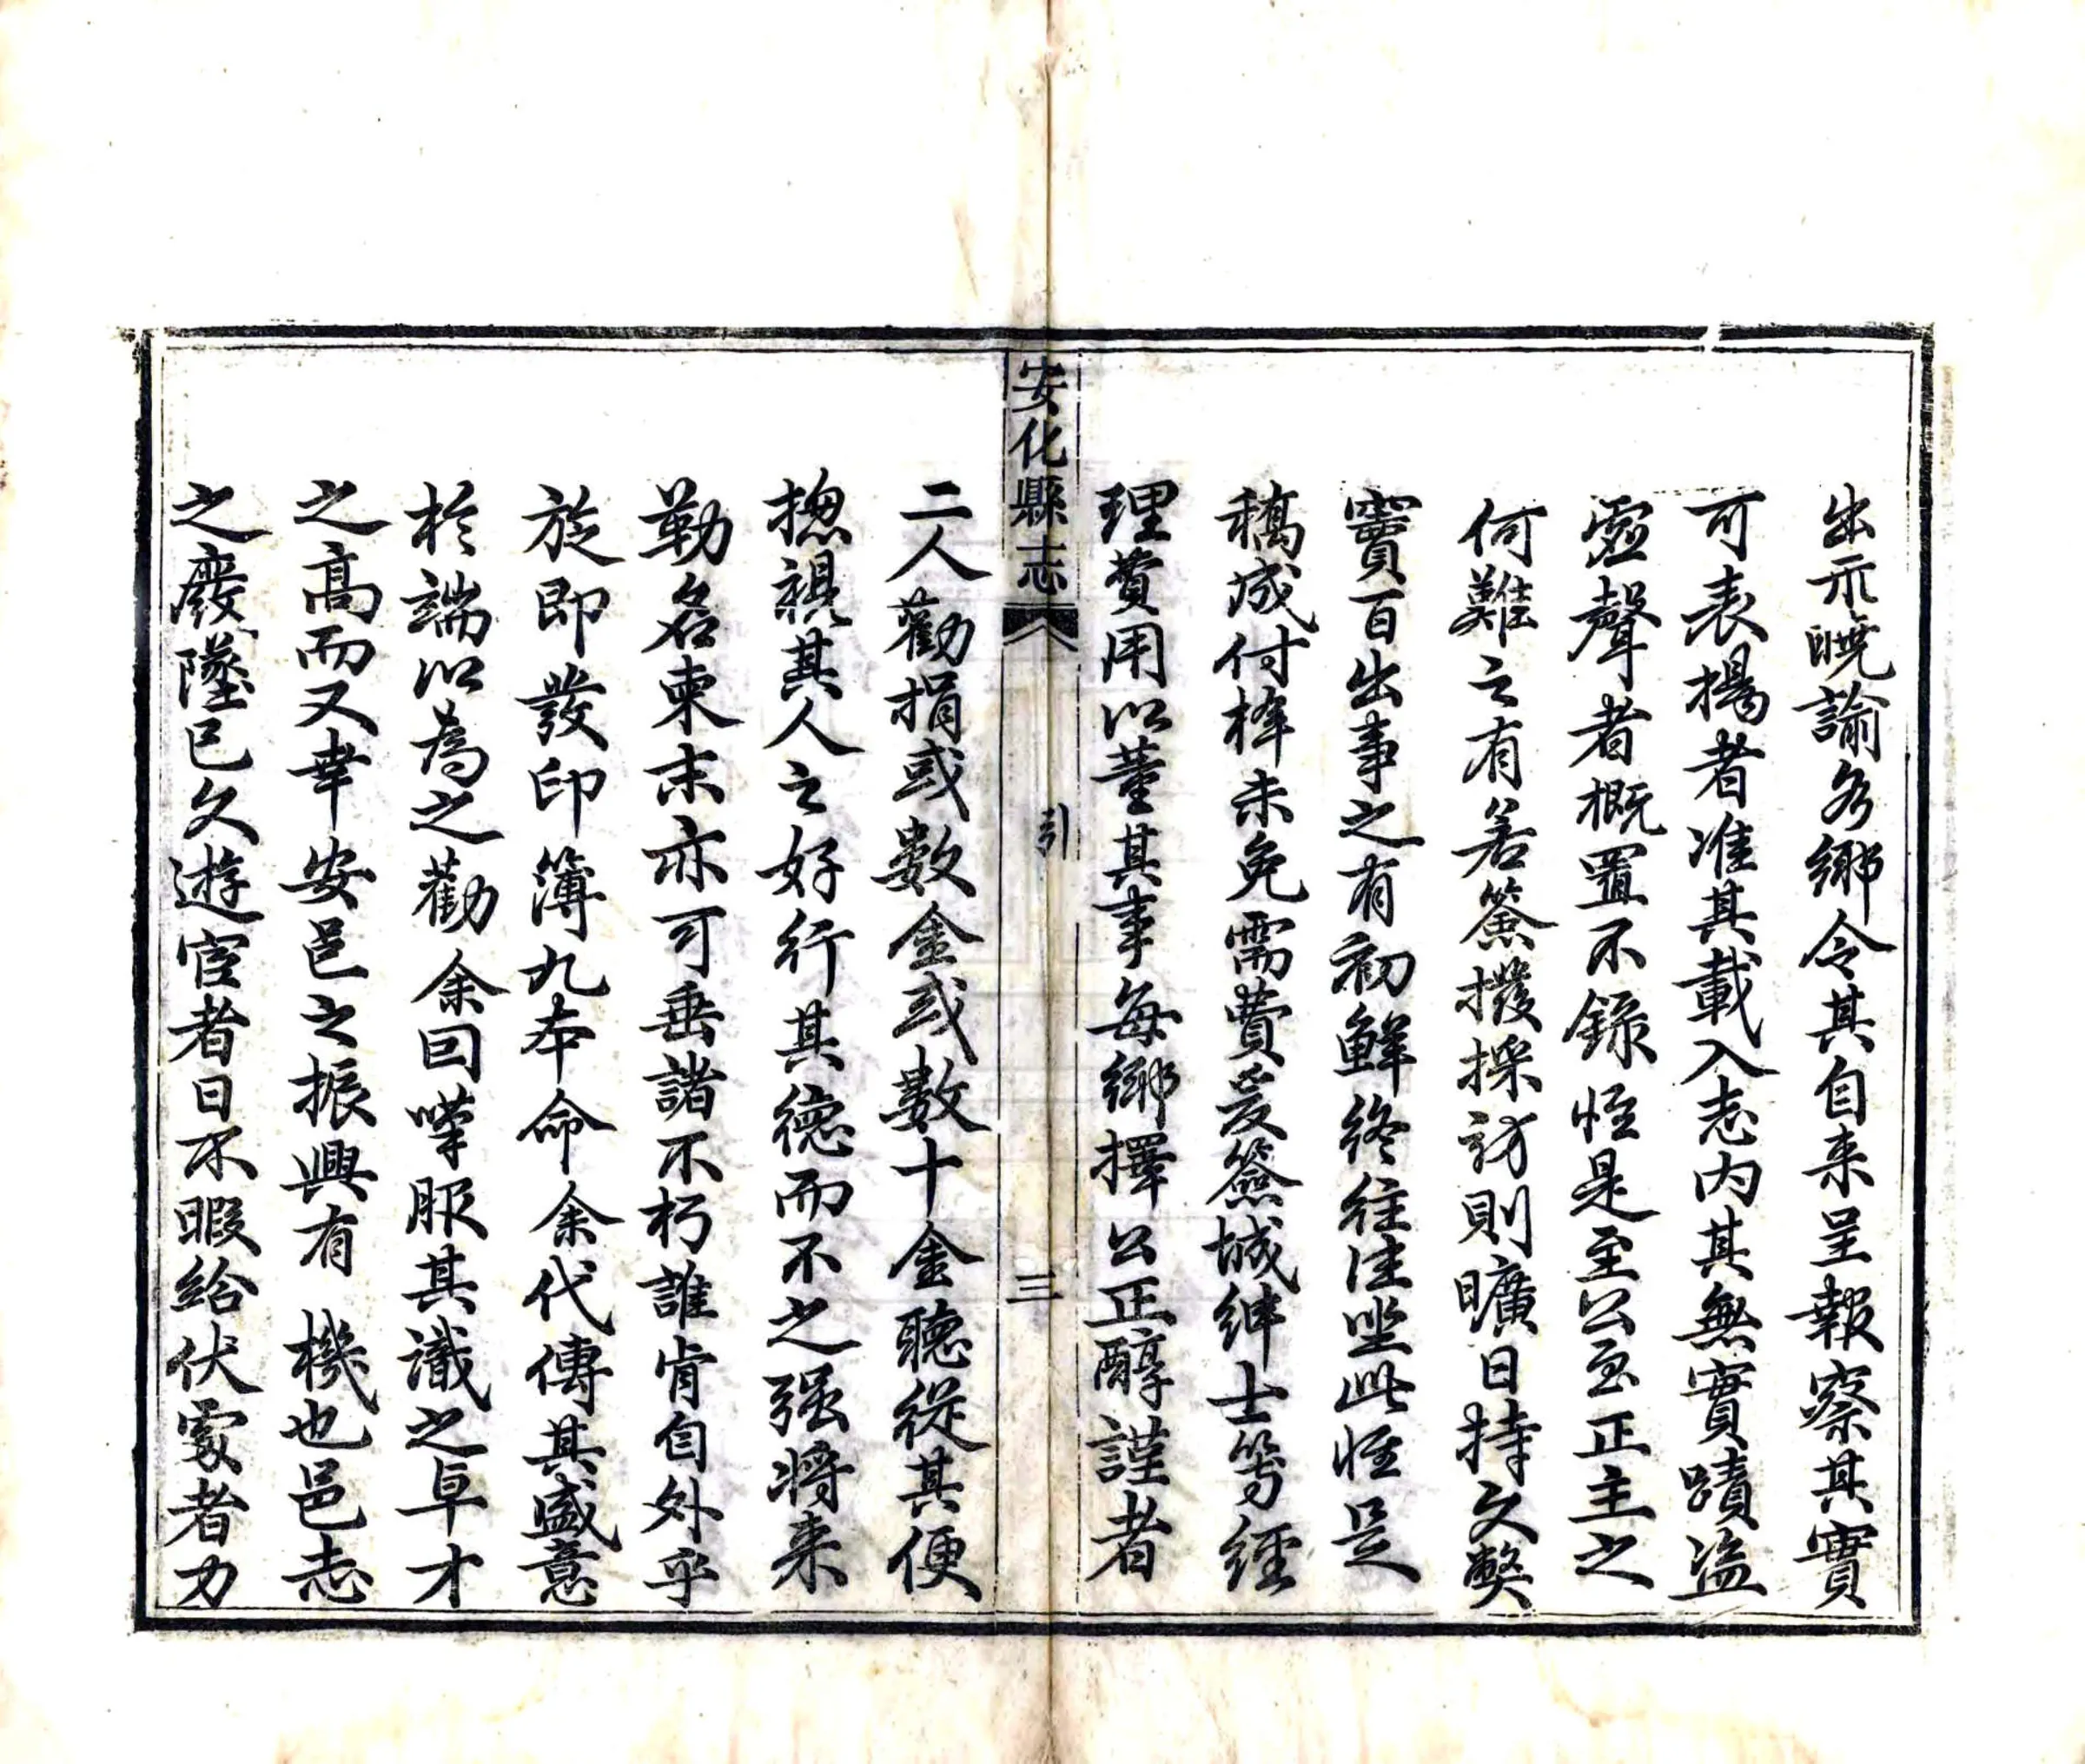 出示曉諭各鄉令其自来呈報察其實
可表揚者准其載入志内其無實蹟盜
虛聲者概置不錄惟是至公至正主之
何難之有若簽撥採訪則曠日持久獘
竇百出事之有初鮮終往往坐此惟是
稿成付梓未免需費爰簽城紳士等經
理費用以董其事每鄉擇公正醇謹者
安化縣志
引
三
二人勸捐或數金或數十金聽從其便
揔視其人之好行其德而不之强將来
勒名柬末亦可垂諸不朽誰肯自外乎
旋即發印簿九本命余代傳其盛意
於端以為之勸余回嘆服其識之卓才
之高而又幸安邑之振興有機也邑志
之廢墜已久遊宦者日不暇給伏處者力